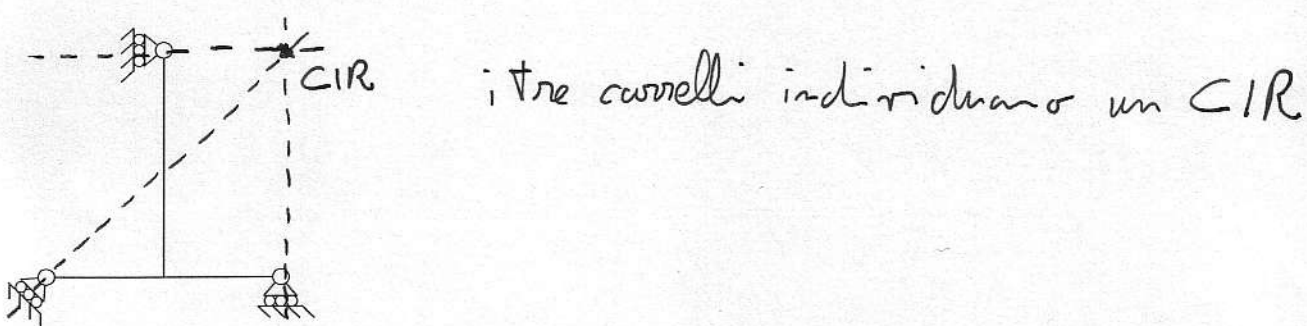 CIR
i tre carrelli individuano un CIR